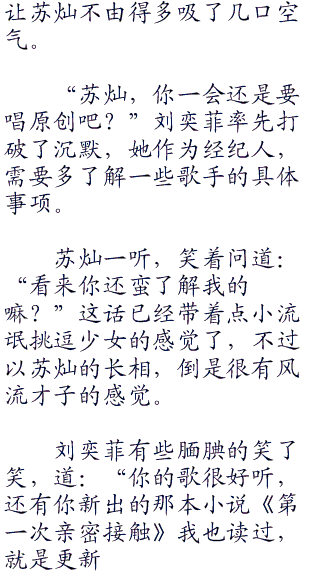 让苏灿不由得多吸了几口空
气。
“苏灿，你一会还是要
唱原创吧？”刘奕菲率先打
破了沉默，她作为经纪人，
需要多了解一些歌手的具体
事项。
苏灿一听，笑着问道：
“看来你还蛮了解我的
嘛？”这话已经带着点小流
氓挑逗少女的感觉了，不过
以苏灿的长相，倒是很有风
流才子的感觉。
刘奕菲有些腼腆的笑了
笑，道：“你的歌很好听，
还有你新出的那本小说《第
一次亲密接触》我也读过，
就是更新